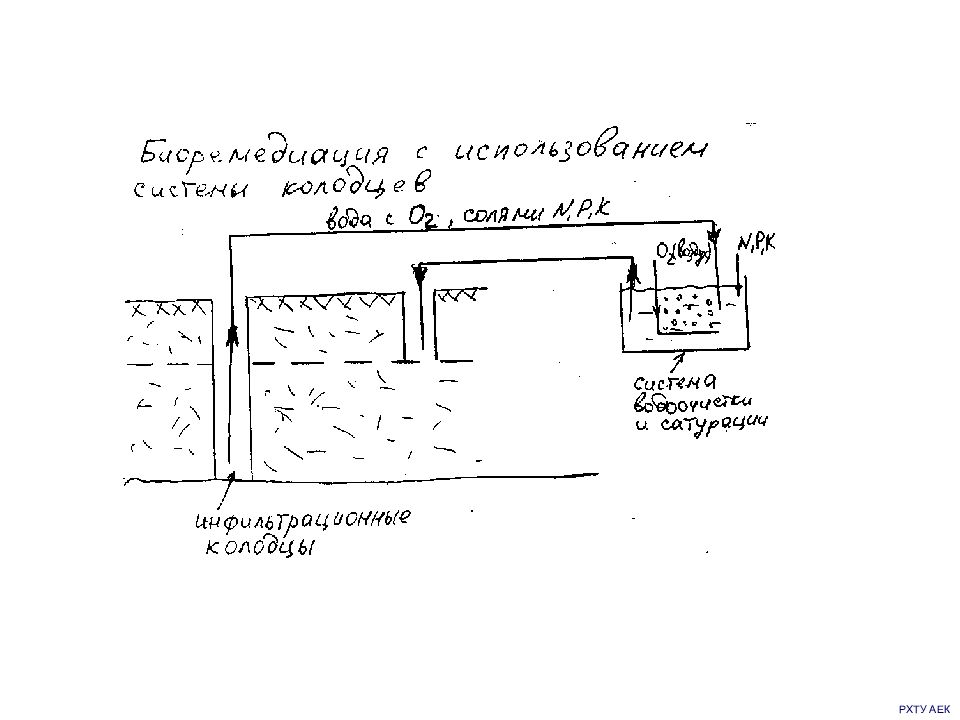 Биоремедиация с использованием
системы колодцев
вода с O₂, солями N,P,K
O₂(воздух)
N,P,K
система
водоочистки
и сатурации
инфильтрационные
колодцы
РХТУ АЕК